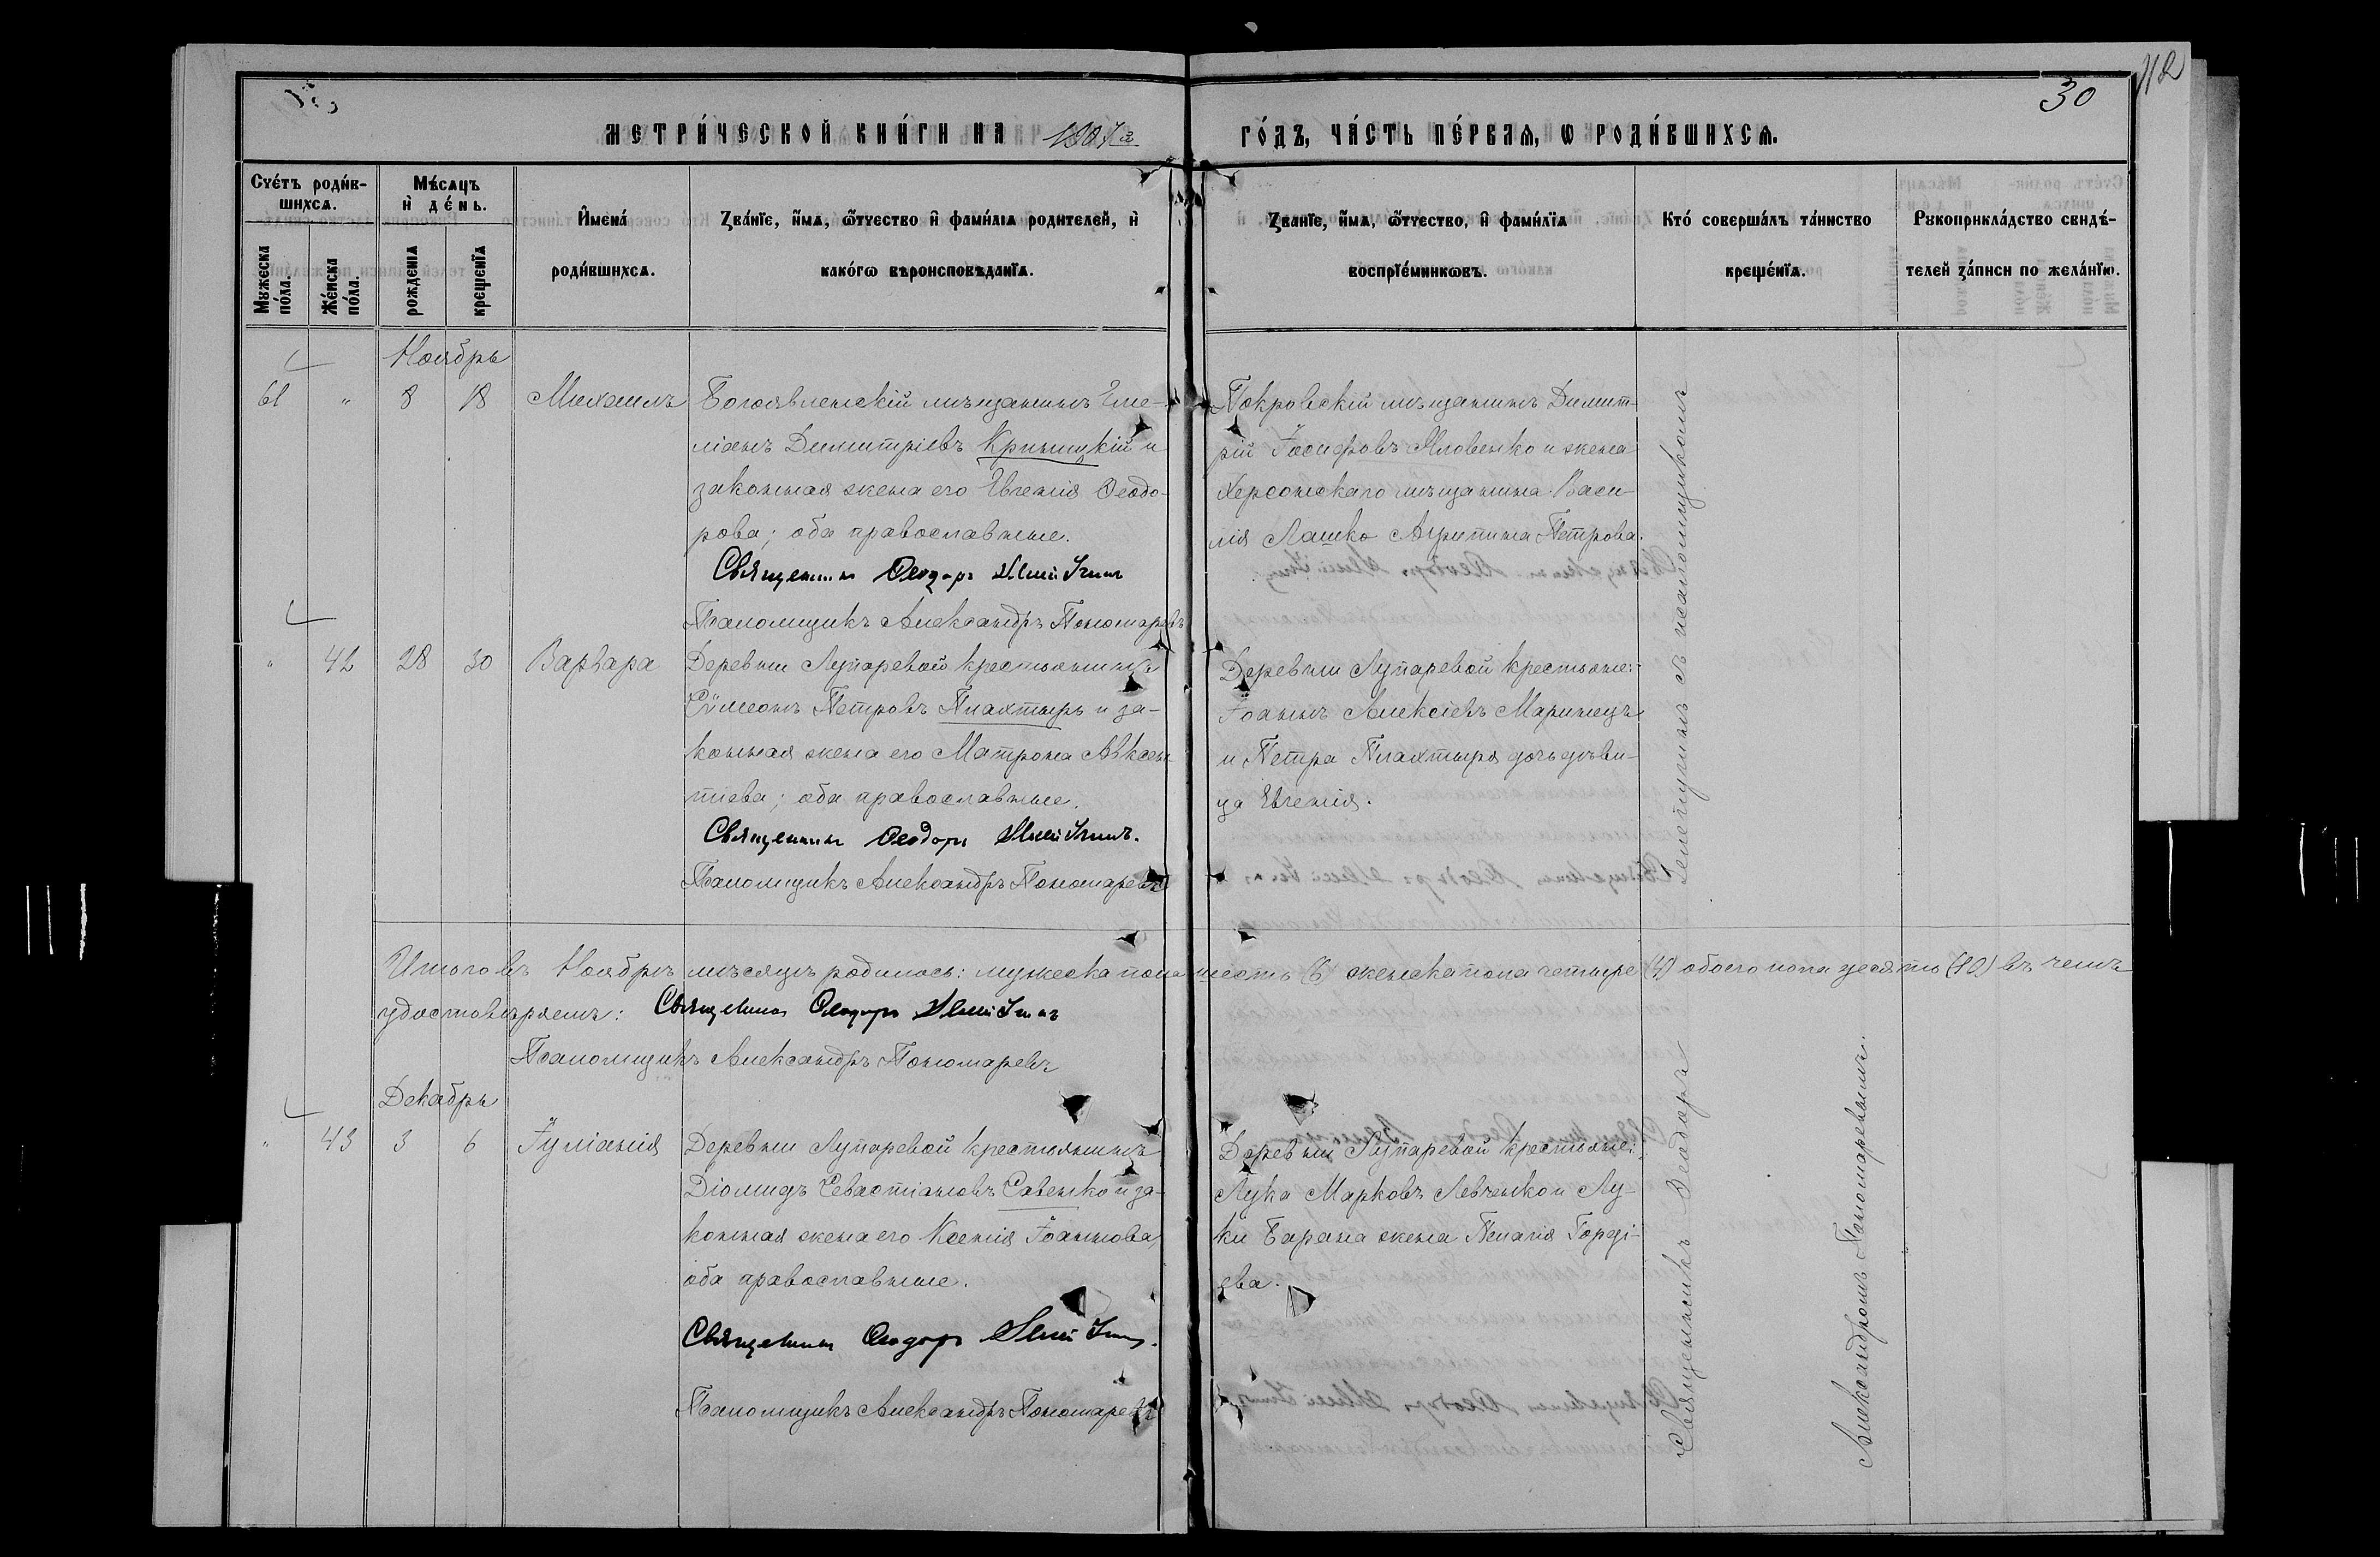 30
МЕТРИ́ЧЕСКОЙ КНИ́ГИ НА
ГО́ДЪ, ЧА́СТЬ ПЕ́РВАѦ, Ѡ РОДИ́ВШИХСѦ.
Счéтъ роди́в-
шихсѧ.
Мꙋжеска по́ла.
Же́нска по́ла.
Мѣ́сѧцъ
и҆ де́нь.
рожденїѧ
крещенїѧ
И҆мена́
роди́вшихсѧ.
Зва́нїе, и҆́мѧ, ѻ҆́тчество и҆ фами́лїѧ родителей, и҆
како́гѡ вѣроисповѣданїѧ.
Зва́нїе, и҆́мѧ, ѻ҆́тчество, и҆ фами́лїѧ
воспрїе́мникѡвъ.
Кто́ соверша́лъ та́инство
креще́нїѧ.
Рꙋкоприкла́дство свидѣ́-
телей за́писи по жела́нїю.
Ноябрь
61 " 8 18 Михаилъ
Богоявленскій мѣщанинъ Еме-
ліанъ Димитріевъ Криницкій и
законная жена его Евгенія Ѳеодо-
рова; оба православные.
Священник Ѳеодоръ
Псаломщикъ Александръ Пономаревъ
Покровскій мѣщанинъ Димит-
рій Іосифовъ Яловенко и жена
Херсонскаго мѣщанина Васи-
лія Лашко Агрипина Петрова.
" 42 28 30 Варвара
Деревни Лупаревой крестьянинъ
Сѵмеонъ Петровъ Плахтырь и за-
конная жена его Матрона Авксен-
тіева; оба православные.
Священник Ѳеодоръ
Псаломщикъ Александръ Пономаревъ
Деревни Лупаревой крестьяне:
Іоаннъ Алексіевъ Маринецъ
и Петра Плахтыря дочь дѣви-
ца Евгенія.
Итого въ Ноябрѣ мѣсяцѣ родилось: мужеска пола шесть (6) женска пола четыре (4) обоего пола десять (10) въ чемъ
удостовѣряемъ: Священник Ѳеодоръ
Псаломщикъ Александръ Пономаревъ
Декабрь
" 43 3 6 Іуліанія
Деревни Лупаревой крестьянинъ
Діомидъ Севастіановъ Савенко и за-
конная жена его Ксенія Іоаннова,
оба православные.
Священник Ѳеодоръ
Псаломщикъ Александръ Пономаревъ
Деревни Лупаревой крестьяне:
Лука Марковъ Левченко и Лу-
ки Барана жена Пелагія Горді-
ева.
Священникъ Ѳеодоръ с псаломщикомъ
Александромъ Пономаревымъ.